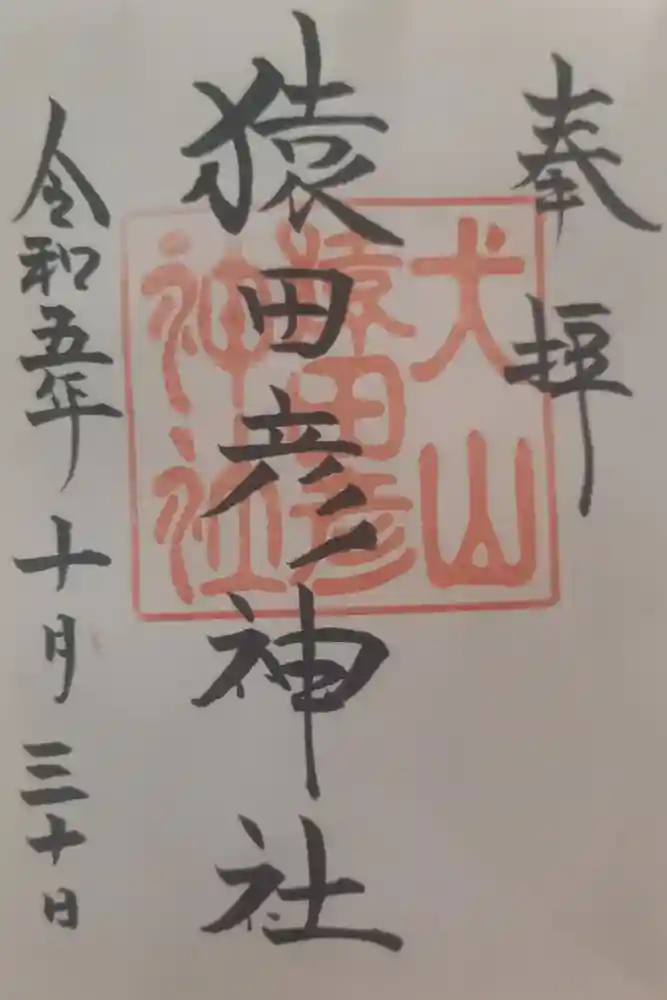 奉拝
猿田彦神社
令和五年十月三十日
犬山
猿田彦
神社